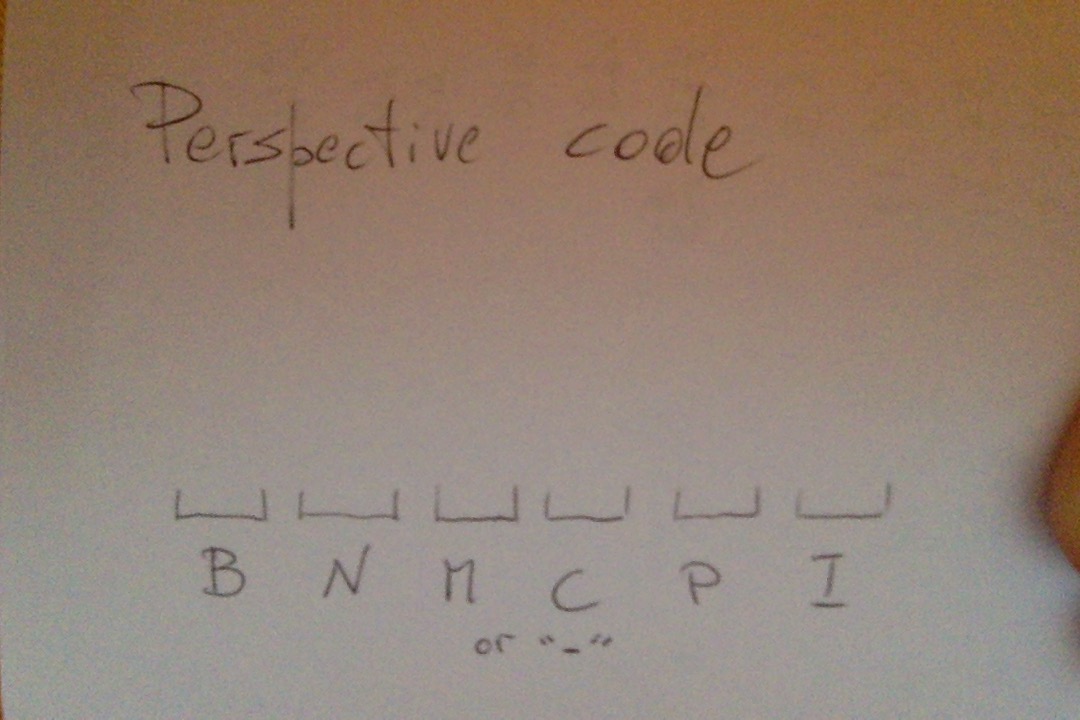 Perspective code
B N M C P I
or "-"